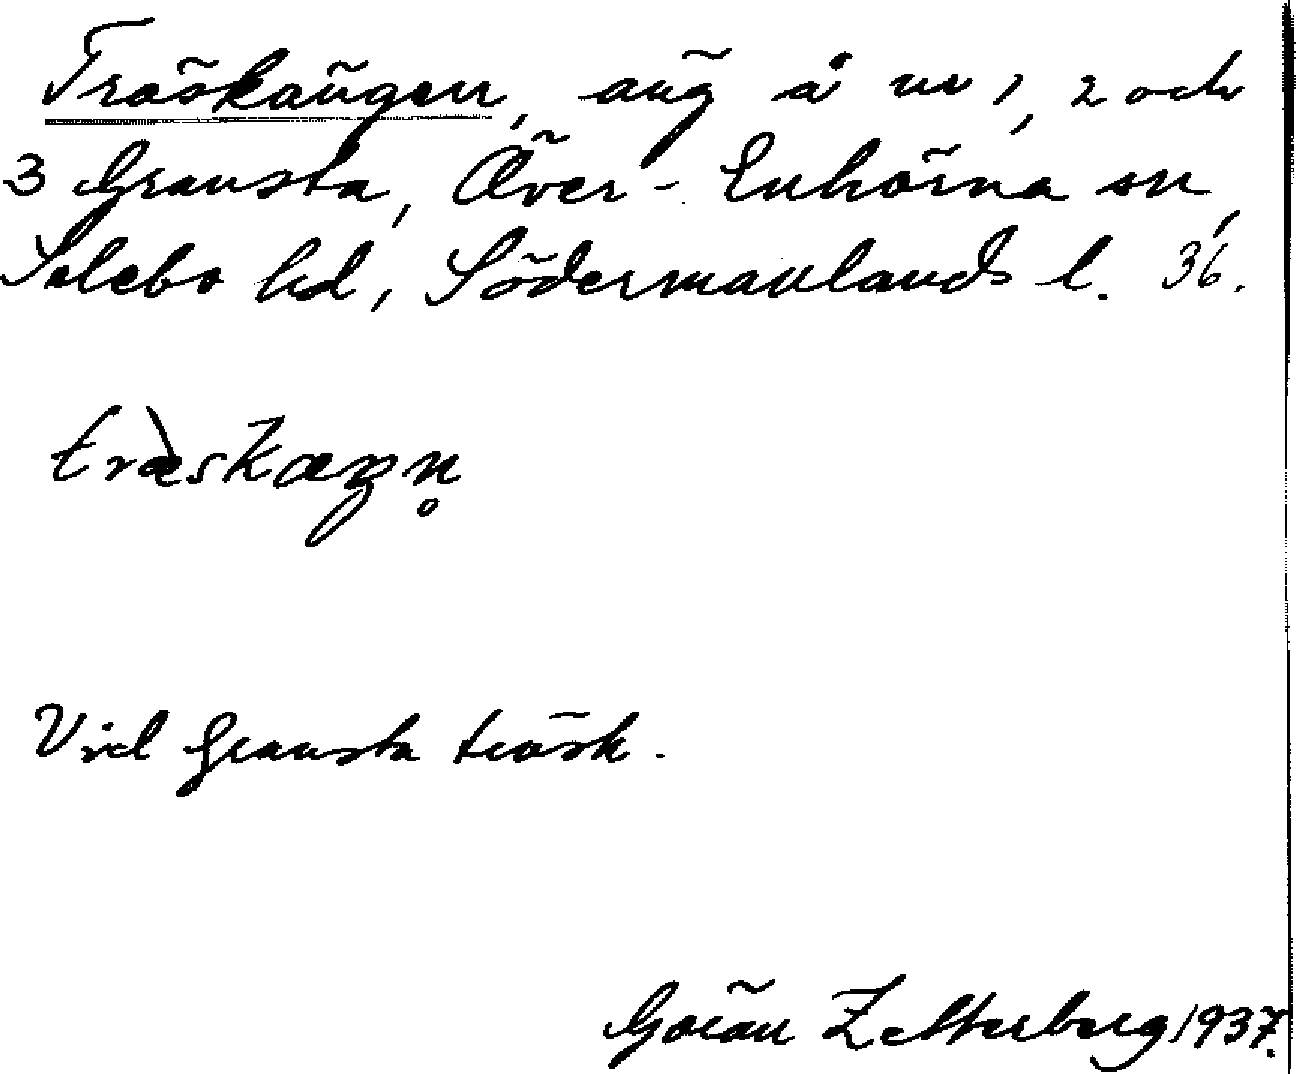 Träskängen, äng å nr 1, 2 och
3 Gransta, Över-Enhörna sn,
Selebo hd, Södermanlands l. 36.
træ̀skæŋn̥
Vid Gransta träsk.
Göran Zetterberg 1937.